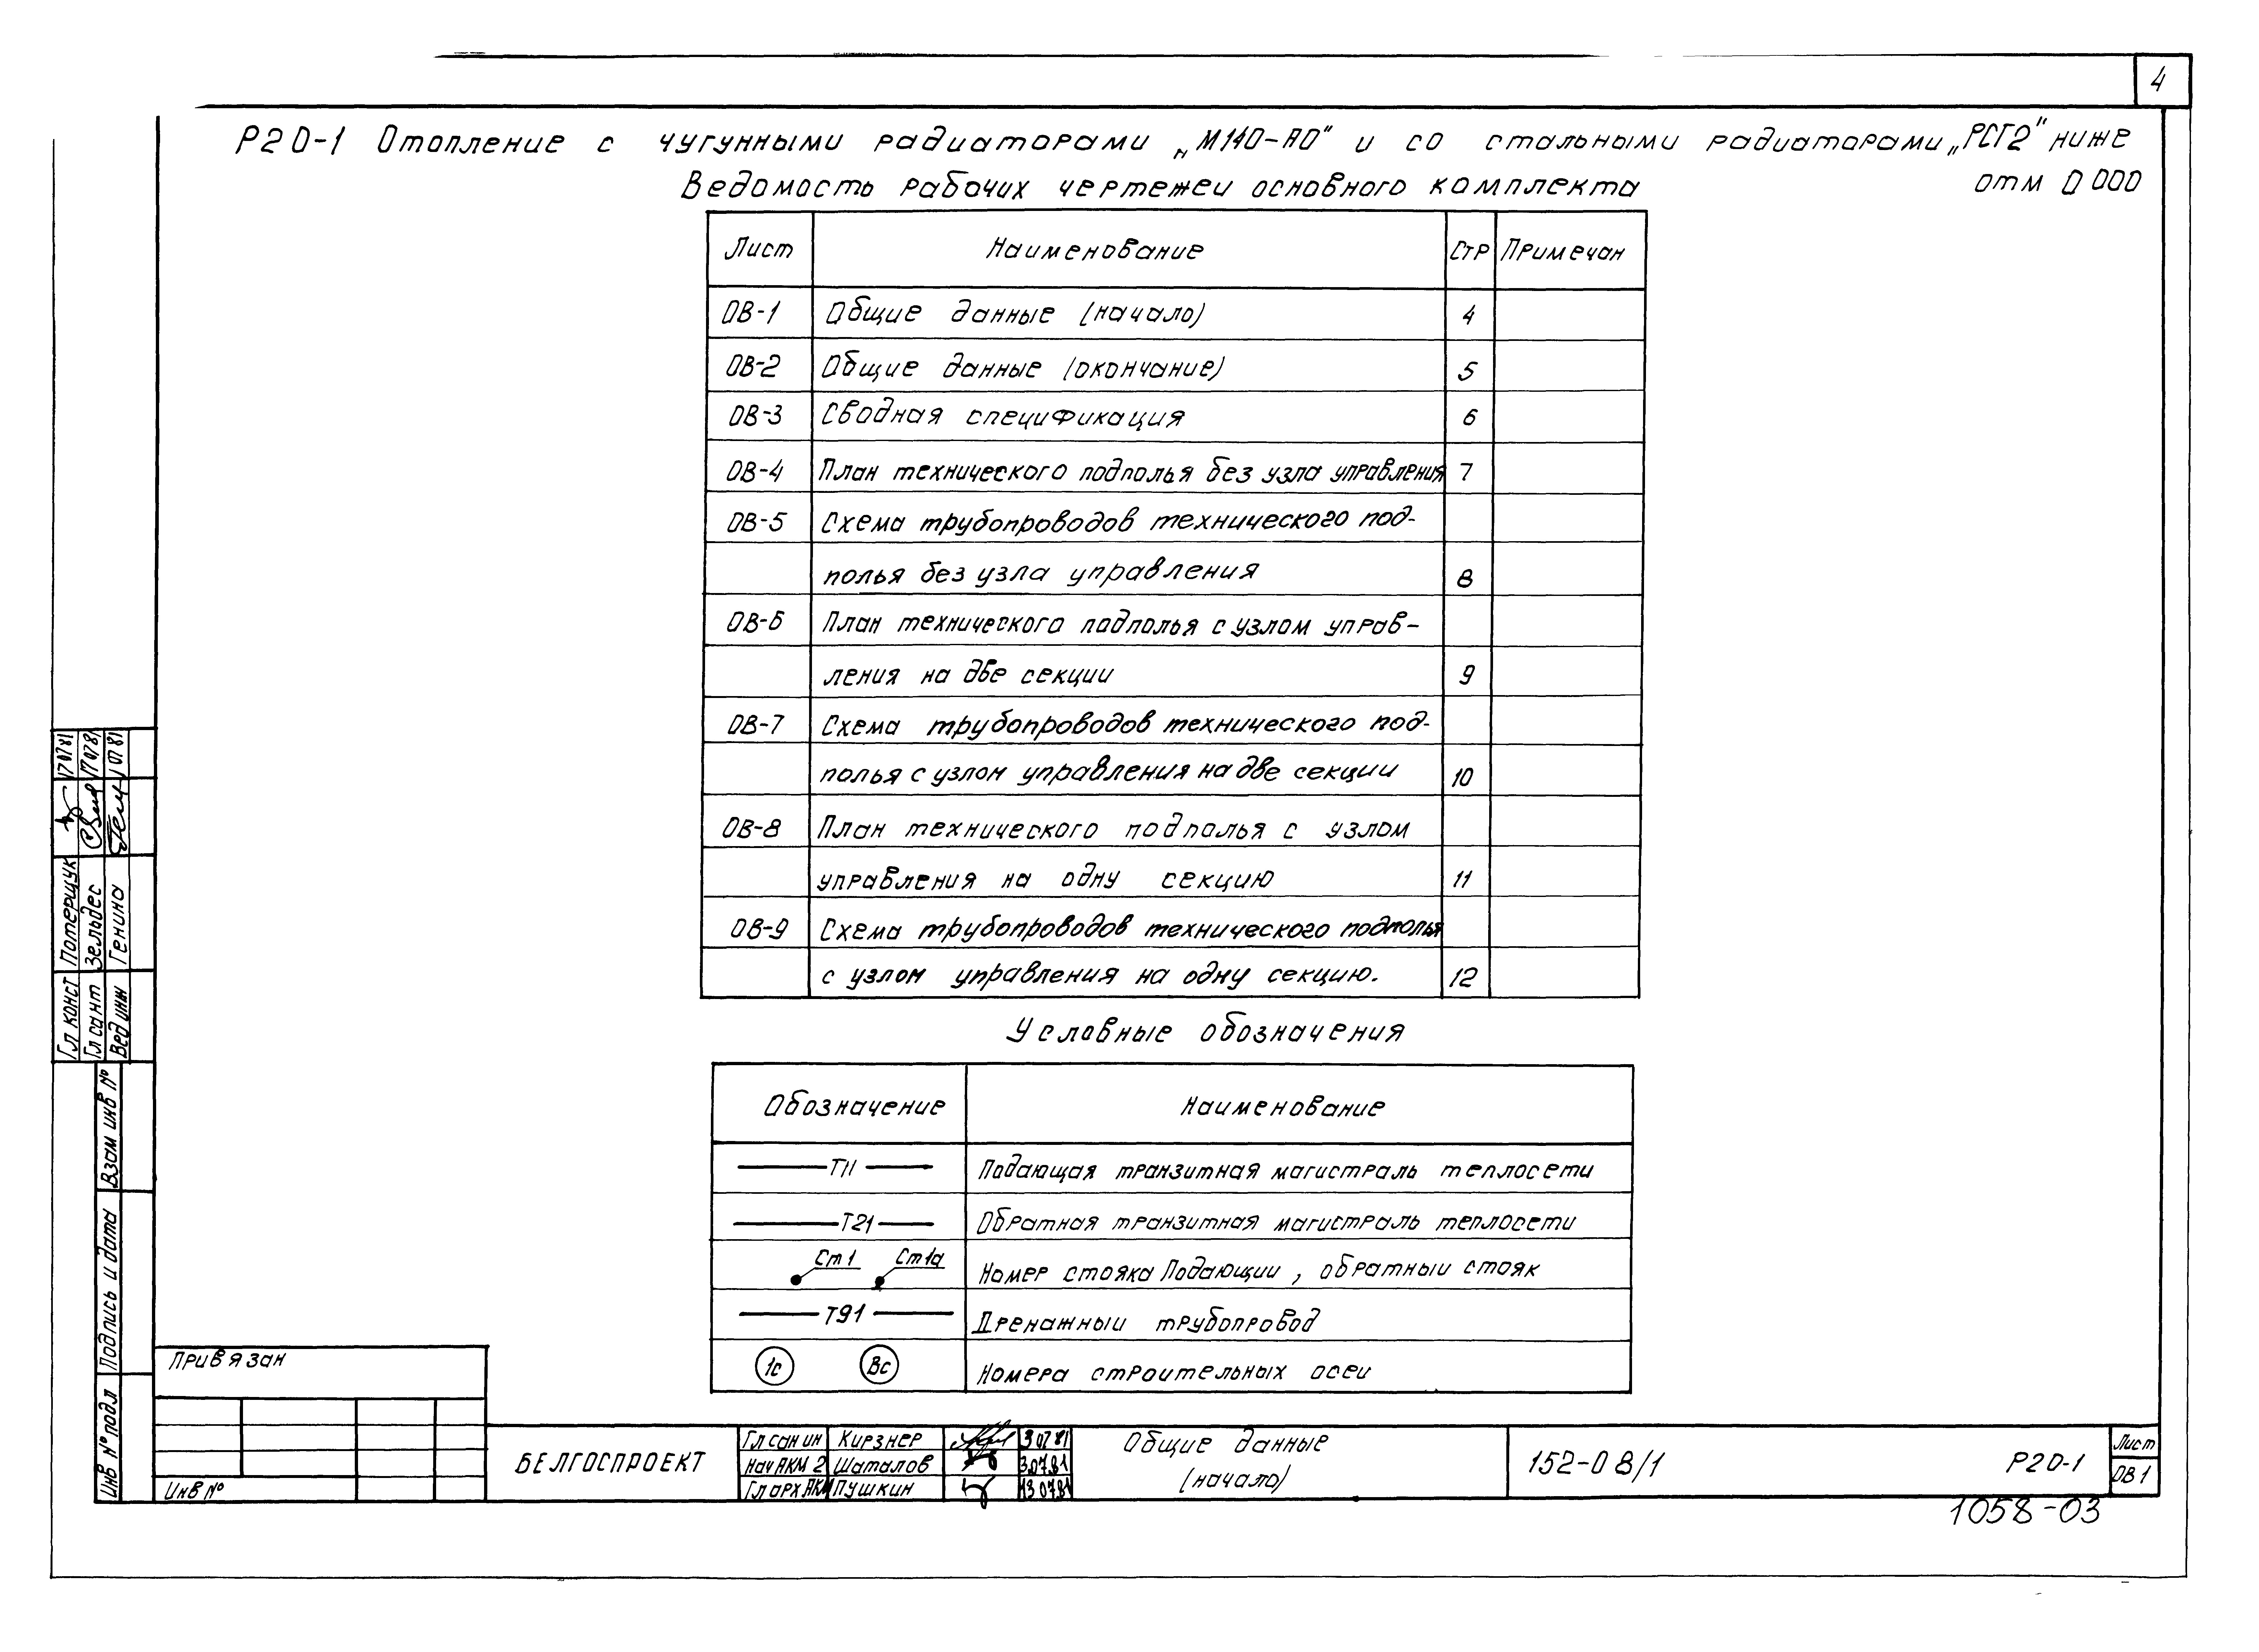 4
Р2О-1 Отопление с чугунными радиаторами „М140-АО" и со стальными радиаторами „РСГ2" ниже
отм 0 000
Ведомость рабочих чертежеи основного комплекта
Лист Наименование Стр Примечан
ОВ-1 Общие данные (начало) 4
ОВ-2 Общие данные (окончание) 5
ОВ-3 Сводная спецификация 6
ОВ-4 План технического подполья без узла управления 7
ОВ-5 Схема трубопроводов технического под-
полья без узла управления 8
ОВ-6 План технического подполья с узлом управ-
ления на две секции 9
ОВ-7 Схема трубопроводов технического под-
полья с узлом управления на две секции 10
ОВ-8 План технического подполья с узлом
управления на одну секцию 11
ОВ-9 Схема трубопроводов технического подполья
с узлом управления на одну секцию. 12
Условные обозначения
Обозначение Наименование
Т11 Подающая транзитная магистраль теплосети
Т21 Обратная транзитная магистраль теплосети
Ст1 Ст1а Номер стояка Подающии, обратныи стояк
Т91 Дренажныи трубопровод
1с Вс Номера строительных осеи
Гл конст Потерщук 17 07 81
Гл сант Зельдес 17 07 81
Вед инж Генина 07 81
Взам инв №
Подпись и дата
Инв № подл
Привязан
Инв №
БЕЛГОСПРОЕКТ
Гл сан ин Кирзнер 3 07 81
Нач АКМ 2 Шаталов 3.07.81
Гл арх АКМ Пушкин 13 07 81
Общие данные
(начало)
152-08/1
Р2О-1
Лист
ОВ 1
1058-03